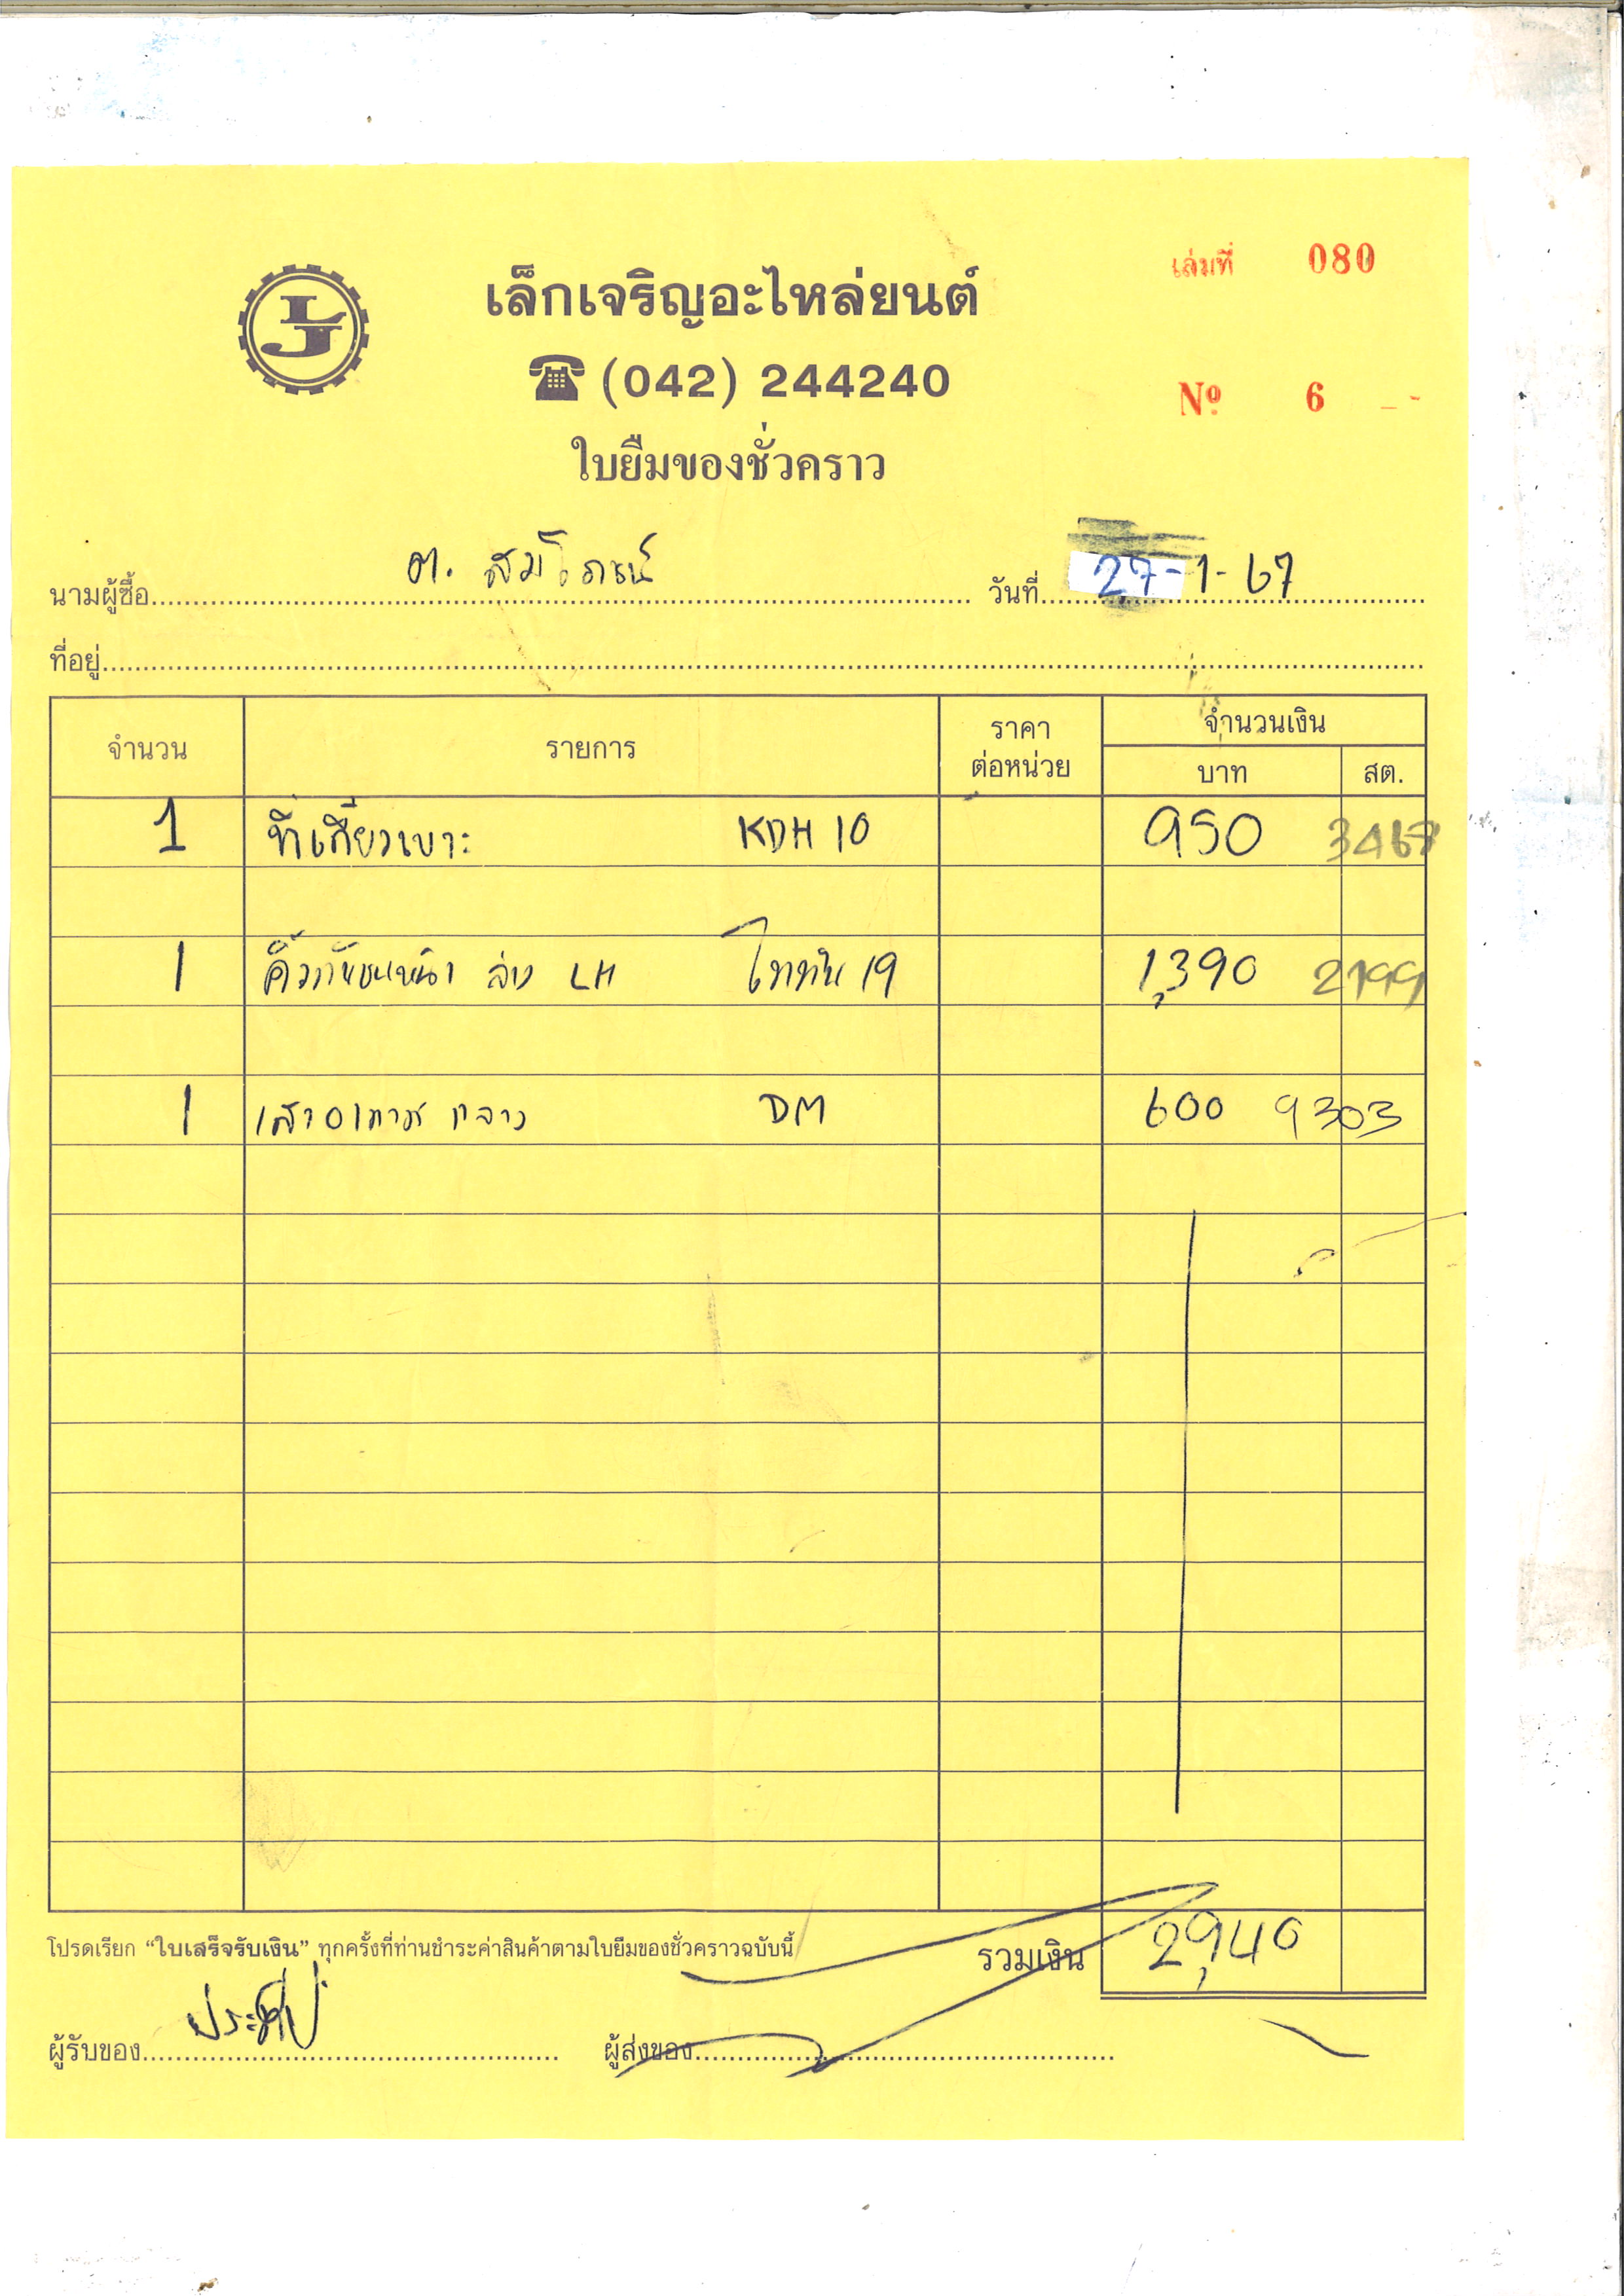 เล่มที่ 080
LJ
เล็กเจริญอะไหล่ยนต์
(042) 244240
Nº 6
ใบยืมของชั่วคราว
นามผู้ซื้อ วันที่ 27-1-67
ที่อยู่
จำนวน รายการ ราคาต่อหน่วย จำนวนเงิน
บาท สต.
1 KDH 10 950
1 คิ้วกันชนหน้า ล่าง LH ไททัน 19 1,390 2799
1 เสาอากาศ กลาง DM 600 9303
โปรดเรียก “ใบเสร็จรับเงิน” ทุกครั้งที่ท่านชำระค่าสินค้าตามใบยืมของชั่วคราวฉบับนี้ รวมเงิน 2,940
ผู้รับของ ประทีป ผู้ส่งของ